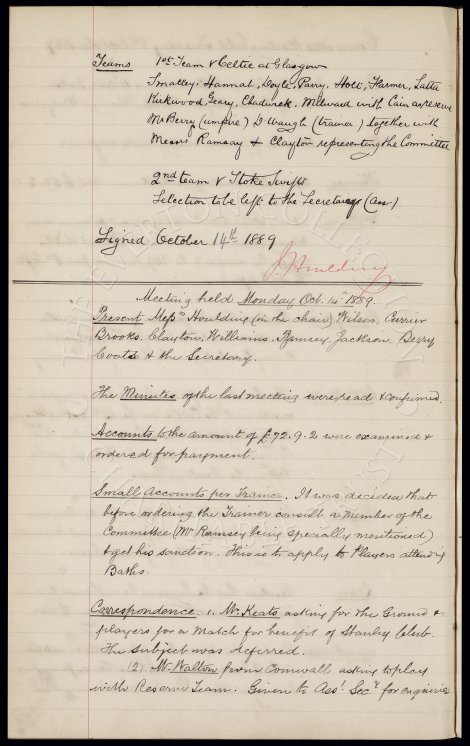 Teams 1st Team v Celtic at Glasgow
Smalley, Hannah, Doyle, Parry, Holt, Farmer, Latta
Kirkwood, Geary, Chadwick, Milward with Cain as reserve
Mr Berry (umpire) D. Waugh (trainer) together with
Messrs Ramsay & Clayton representing the Committee
2nd team v Stoke Swifts
Selection to be left to the Secretary (Ass.)
Signed October 14th 1889
J. Houlding
Meeting held Monday Oct. 14th 1889.
Present Messrs Houlding (in the chair) Wilson, Currier
Brooks, Clayton, Williams, Ramsey, Jackson, Berry
Coates & the Secretary.
The Minutes of the last meeting were read & confirmed.
Accounts to the amount of £72.9.2 were examined &
ordered for payment.
Small Accounts per Trainer. It was decided that
before ordering the Trainer consult a Member of the
Committee (Mr Ramsey being specially mentioned)
& get his sanction. This is to apply to Players attending
Baths.
Correspondence. 1. Mr Keats asking for the Ground &
players for a Match for benefit of Stanley Club.
The subject was deferred.
(2) Mr Walton from Cornwall asking to play
with Reserve Team. Given to Asst Secy for enquiries
EVERTON COLLECTION